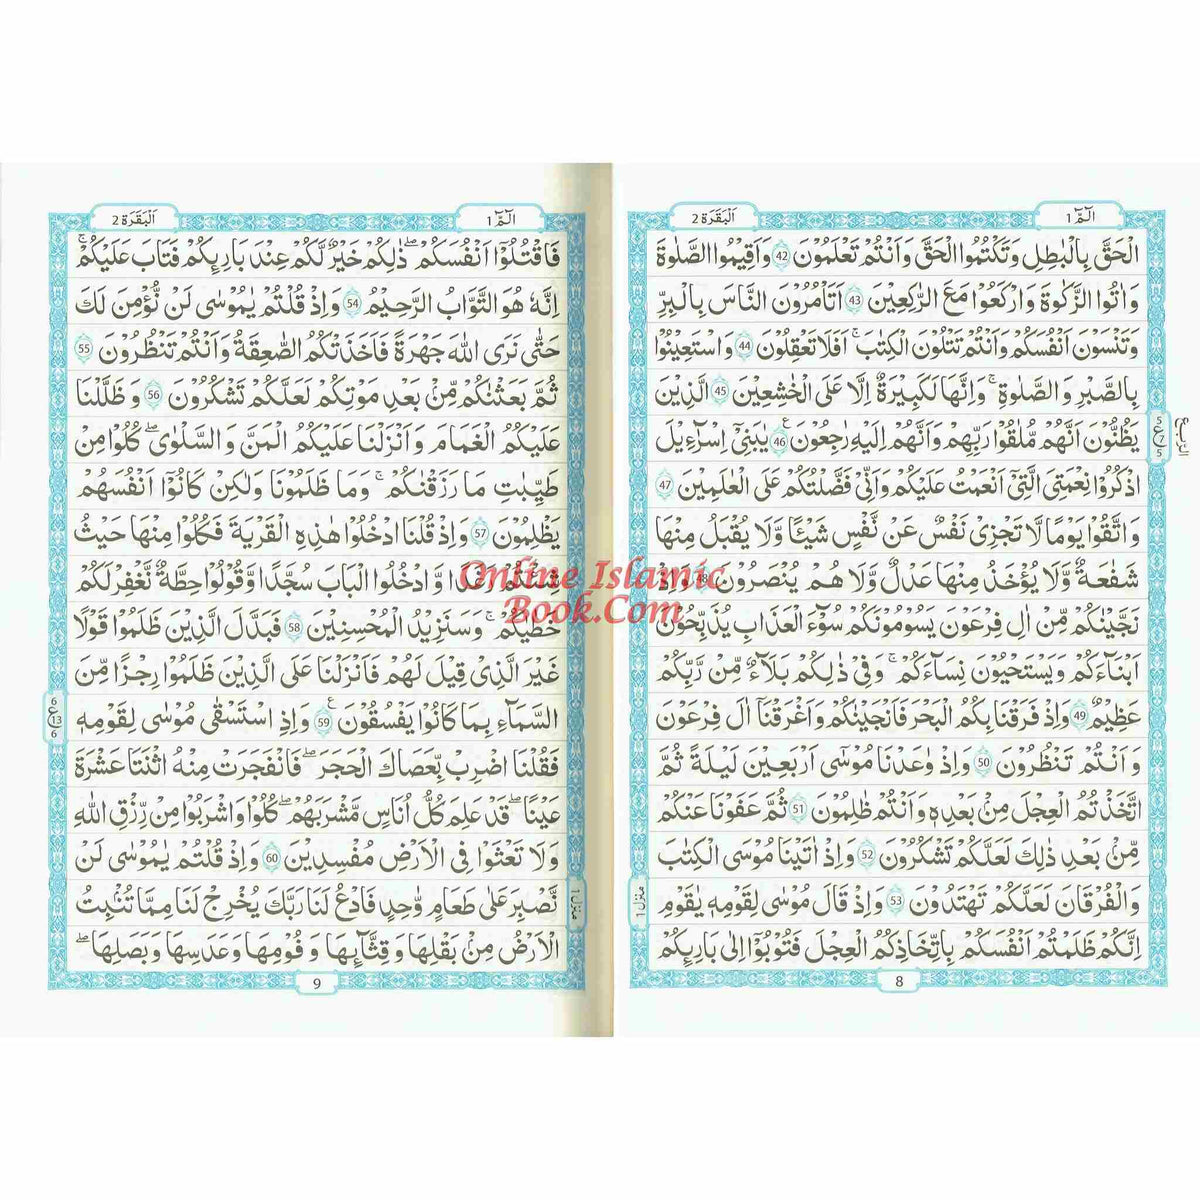 الٓمّٓ 1
اَلْبَقَرَة 2
الْحَقَّ بِالْبٰطِلِ وَتَكْتُمُوا الْحَقَّ وَاَنْتُمْ تَعْلَمُوْنَ 42 وَاَقِيْمُوا الصَّلٰوةَ
وَاٰتُوا الزَّكٰوةَ وَارْكَعُوْا مَعَ الرّٰكِعِيْنَ 43 اَتَاْمُرُوْنَ النَّاسَ بِالْبِرِّ
وَتَنْسَوْنَ اَنْفُسَكُمْ وَاَنْتُمْ تَتْلُوْنَ الْكِتٰبَ ۚ اَفَلَا تَعْقِلُوْنَ 44 وَاسْتَعِيْنُوْا
بِالصَّبْرِ وَ الصَّلٰوةِ ۚ وَاِنَّهَا لَكَبِيْرَةٌ اِلَّا عَلَى الْخٰشِعِيْنَ 45 الَّذِيْنَ
يَظُنُّوْنَ اَنَّهُمْ مُّلٰقُوْا رَبِّهِمْ وَاَنَّهُمْ اِلَيْهِ رٰجِعُوْنَ ع 46 يٰبَنِيْٓ اِسْرَآءِيْلَ
اذْكُرُوْا نِعْمَتِيَ الَّتِيْٓ اَنْعَمْتُ عَلَيْكُمْ وَاَنِّيْ فَضَّلْتُكُمْ عَلَى الْعٰلَمِيْنَ 47
وَاتَّقُوْا يَوْمًا لَّا تَجْزِيْ نَفْسٌ عَنْ نَّفْسٍ شَيْـًٔا وَّلَا يُقْبَلُ مِنْهَا
شَفَاعَةٌ وَّلَا يُؤْخَذُ مِنْهَا عَدْلٌ وَّلَا هُمْ يُنْصَرُوْنَ 48 وَاِذْ
نَجَّيْنٰكُمْ مِّنْ اٰلِ فِرْعَوْنَ يَسُوْمُوْنَكُمْ سُوْٓءَ الْعَذَابِ يُذَبِّحُوْنَ
اَبْنَآءَكُمْ وَيَسْتَحْيُوْنَ نِسَآءَكُمْ ۚ وَفِيْ ذٰلِكُمْ بَلَآءٌ مِّنْ رَّبِّكُمْ
عَظِيْمٌ 49 وَاِذْ فَرَقْنَا بِكُمُ الْبَحْرَ فَاَنْجَيْنٰكُمْ وَاَغْرَقْنَآ اٰلَ فِرْعَوْنَ
وَ اَنْتُمْ تَنْظُرُوْنَ 50 وَاِذْ وٰعَدْنَا مُوْسٰٓى اَرْبَعِيْنَ لَيْلَةً ثُمَّ
اتَّخَذْتُمُ الْعِجْلَ مِنْۢ بَعْدِهٖ وَاَنْتُمْ ظٰلِمُوْنَ 51 ثُمَّ عَفَوْنَا عَنْكُمْ
مِّنْۢ بَعْدِ ذٰلِكَ لَعَلَّكُمْ تَشْكُرُوْنَ 52 وَاِذْ اٰتَيْنَا مُوْسَى الْكِتٰبَ
وَالْفُرْقَانَ لَعَلَّكُمْ تَهْتَدُوْنَ 53 وَاِذْ قَالَ مُوْسٰى لِقَوْمِهٖ يٰقَوْمِ
اِنَّكُمْ ظَلَمْتُمْ اَنْفُسَكُمْ بِاتِّخَاذِكُمُ الْعِجْلَ فَتُوْبُوْٓا اِلٰى بَارِئِكُمْ
الربع
5
ع 7
5
منزل 1
8
الٓمّٓ 1
اَلْبَقَرَة 2
فَاقْتُلُوْٓا اَنْفُسَكُمْ ؕ ذٰلِكُمْ خَيْرٌ لَّكُمْ عِنْدَ بَارِئِكُمْ فَتَابَ عَلَيْكُمْ ۚ
اِنَّهٗ هُوَ التَّوَّابُ الرَّحِيْمُ 54 وَاِذْ قُلْتُمْ يٰمُوْسٰى لَنْ نُّؤْمِنَ لَكَ
حَتّٰى نَرَى اللّٰهَ جَهْرَةً فَاَخَذَتْكُمُ الصّٰعِقَةُ وَاَنْتُمْ تَنْظُرُوْنَ 55
ثُمَّ بَعَثْنٰكُمْ مِّنْۢ بَعْدِ مَوْتِكُمْ لَعَلَّكُمْ تَشْكُرُوْنَ 56 وَ ظَلَّلْنَا
عَلَيْكُمُ الْغَمَامَ وَ اَنْزَلْنَا عَلَيْكُمُ الْمَنَّ وَ السَّلْوٰى ؕ كُلُوْا مِنْ
طَيِّبٰتِ مَا رَزَقْنٰكُمْ ۚ وَمَا ظَلَمُوْنَا وَلٰكِنْ كَانُوْٓا اَنْفُسَهُمْ
يَظْلِمُوْنَ 57 وَاِذْ قُلْنَا ادْخُلُوْا هٰذِهِ الْقَرْيَةَ فَكُلُوْا مِنْهَا حَيْثُ
شِئْتُمْ رَغَدًا وَّ ادْخُلُوا الْبَابَ سُجَّدًا وَّقُوْلُوْا حِطَّةٌ نَّغْفِرْ لَكُمْ
خَطٰيٰكُمْ ۚ وَسَنَزِيْدُ الْمُحْسِنِيْنَ 58 فَبَدَّلَ الَّذِيْنَ ظَلَمُوْا قَوْلًا
غَيْرَ الَّذِيْ قِيْلَ لَهُمْ فَاَنْزَلْنَا عَلَى الَّذِيْنَ ظَلَمُوْا رِجْزًا مِّنَ
السَّمَآءِ بِمَا كَانُوْا يَفْسُقُوْنَ ع 59 وَاِذِ اسْتَسْقٰى مُوْسٰى لِقَوْمِهٖ
فَقُلْنَا اضْرِبْ بِّعَصَاكَ الْحَجَرَ ؕ فَانْفَجَرَتْ مِنْهُ اثْنَتَا عَشْرَةَ
عَيْنًا ؕ قَدْ عَلِمَ كُلُّ اُنَاسٍ مَّشْرَبَهُمْ ؕ كُلُوْا وَاشْرَبُوْا مِنْ رِّزْقِ اللّٰهِ
وَلَا تَعْثَوْا فِى الْاَرْضِ مُفْسِدِيْنَ 60 وَاِذْ قُلْتُمْ يٰمُوْسٰى لَنْ
نَّصْبِرَ عَلٰى طَعَامٍ وَّاحِدٍ فَادْعُ لَنَا رَبَّكَ يُخْرِجْ لَنَا مِمَّا تُنْۢبِتُ
الْاَرْضُ مِنْۢ بَقْلِهَا وَ قِثَّآئِهَا وَ فُوْمِهَا وَعَدَسِهَا وَبَصَلِهَا ؕ
6
ع 13
6
منزل 1
9
Online Islamic
Book.Com